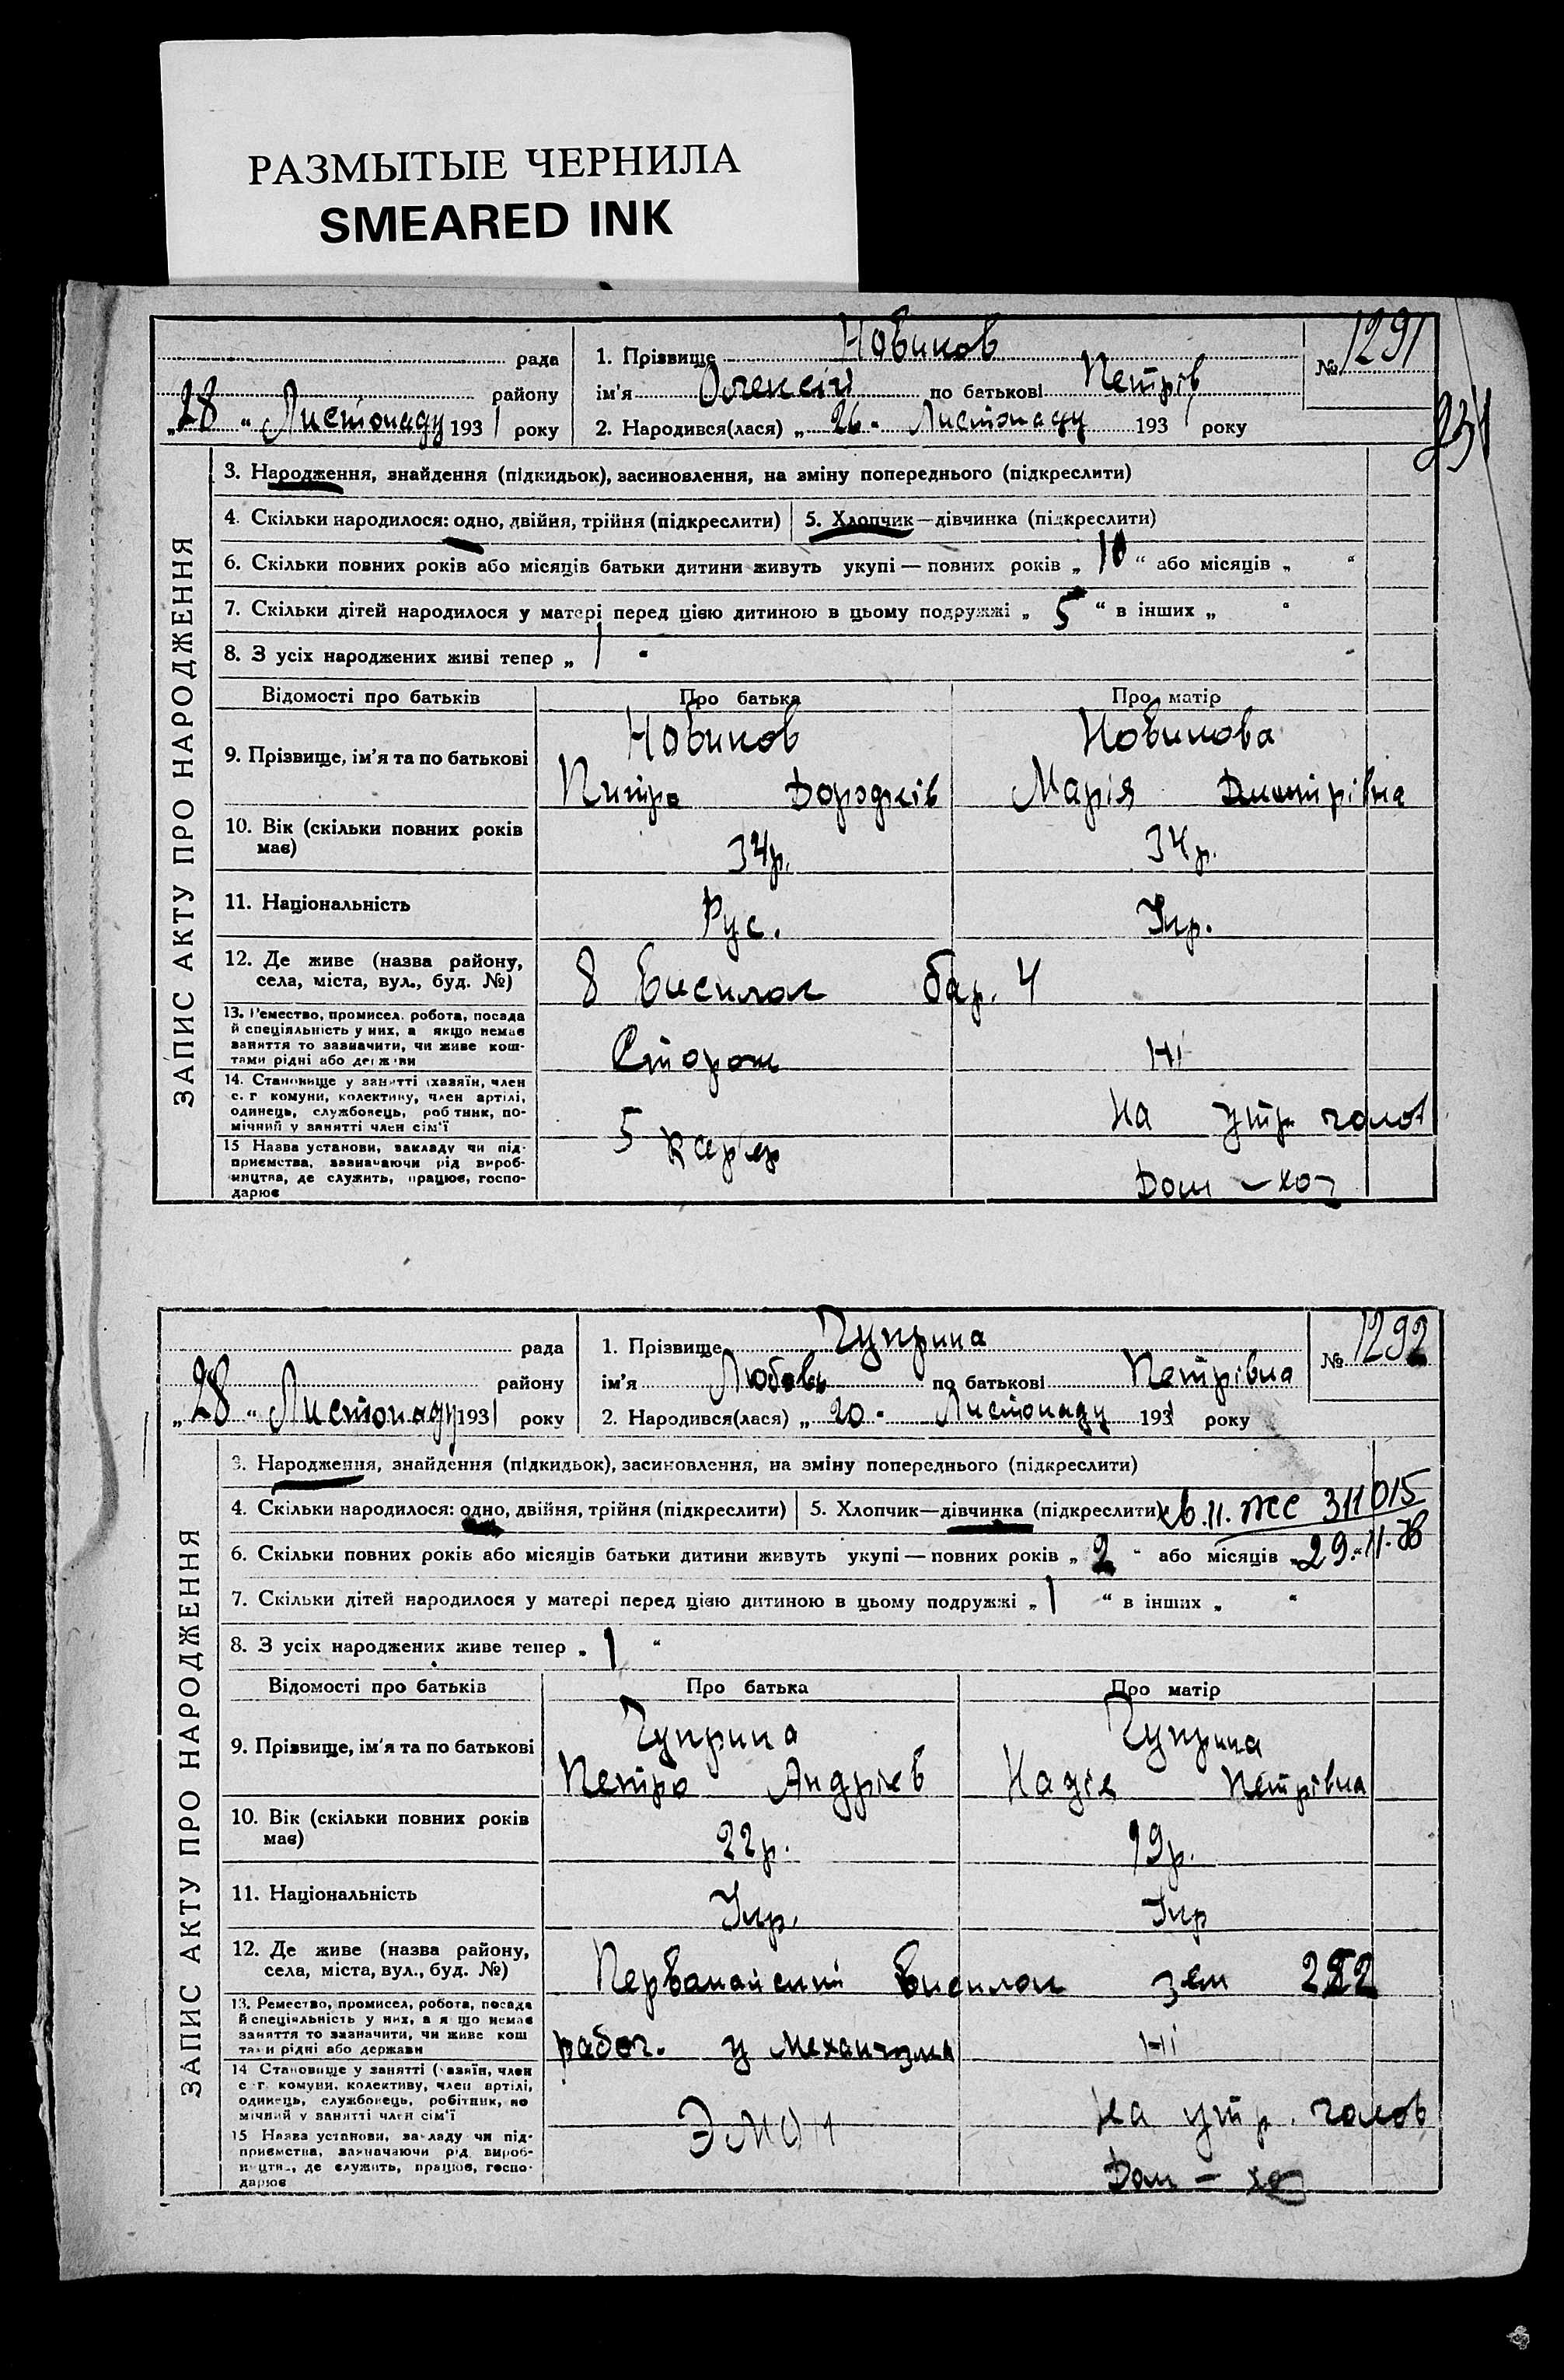 РАЗМЫТЫЕ ЧЕРНИЛА
SMEARED INK
рада
району
„28“ Листопаду 1931 року
1. Прізвище Новиков
ім'я Олексій по батькові Петрів
2. Народився(лася) „26“ Листопаду 1931 року
№ 1291
ЗАПИС АКТУ ПРО НАРОДЖЕННЯ
3. Народження, знайдення (підкидьок), засиновлення, на зміну попереднього (підкреслити)
4. Скільки народилося: одно, двійня, трійня (підкреслити) 5. Хлопчик—дівчинка (підкреслити)
6. Скільки повних років або місяців батьки дитини живуть укупі — повних років „10“ або місяців „ “
7. Скільки дітей народилося у матері перед цією дитиною в цьому подружжі „5“ в інших „ “
8. З усіх народжених живі тепер „1“
Відомості про батьків Про батька Про матір
9. Прізвище, ім'я та по батькові
Новиков Новикова
Марія Дмитрівна
10. Вік (скільки повних років має)
34р. 34р.
11. Національність
Рус. Укр.
12. Де живе (назва району, села, міста, вул., буд. №)
8 Висилок бар. 4
13. Ремество, промисел, робота, посада
й спеціяльність у них, а якщо немає
заняття то зазначити, чи живе кош-
тами рідні або держави
Сторож Ні
14. Становище у занятті (хазяїн, член
с. г комуни, колективу, член артілі,
одинець, службовець, робітник, по-
мічний у занятті член сім'ї
на утр. голов
15 Назва установи, закладу чи під-
приємства, зазначаючи рід вироб-
ництва, де служить, працює, госпо-
дарює
5 кар'єр
Дом - хоз
рада
району
„28“ Листопаду 1931 року
1. Прізвище Чуприна
ім'я Любовь по батькові Петрівна
2. Народився(лася) „20“ Листопаду 1931 року
№ 1292
ЗАПИС АКТУ ПРО НАРОДЖЕННЯ
3. Народження, знайдення (підкидьок), засиновлення, на зміну попереднього (підкреслити)
4. Скільки народилося: одно, двійня, трійня (підкреслити) 5. Хлопчик—дівчинка (підкреслити)
св. II. ЖС 311015
6. Скільки повних років або місяців батьки дитини живуть укупі — повних років „2“ або місяців „ “
7. Скільки дітей народилося у матері перед цією дитиною в цьому подружжі „1“ в інших „ “
8. З усіх народжених живе тепер „1“
Відомості про батьків Про батька Про матір
9. Прізвище, ім'я та по батькові
Чуприна Чуприна
Петро Андріїв Надія Петрівна
10. Вік (скільки повних років має)
22р. 19р.
11. Національність
Укр. Укр
12. Де живе (назва району, села, міста, вул., буд. №)
Первомайський Висилок зем
13. Ремество, промисел, робота, посада
й спеціяльність у них, а якщо немає
заняття то зазначити, чи живе кош
тами рідні або держави
рабоч. у Ні
14 Становище у занятті (хазяїн, член
с г. комуни, колективу, член артілі,
одинець, службовець, робітник, по
мічний у занятті член сім'ї
на утр. голов
15 Назва установи, закладу чи під-
приємства, зазначаючи рід вироб-
ництва, де служить, працює, госпо-
дарює
Дом - хоз